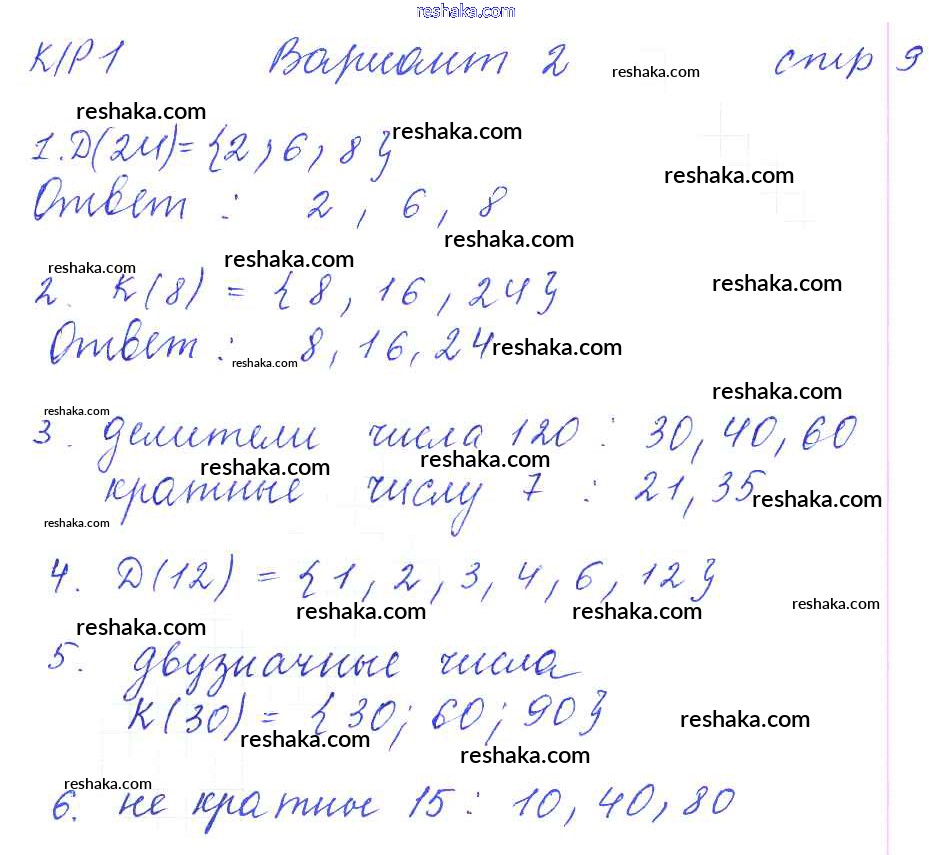 reshaka.com
К/Р 1 Вариант 2 reshaka.com стр 9
reshaka.com
1. D(24)= {2, 6, 8} reshaka.com
reshaka.com
Ответ : 2, 6, 8
reshaka.com
reshaka.com reshaka.com
2. K(8) = {8, 16, 24} reshaka.com
Ответ : 8, 16, 24 reshaka.com
reshaka.com
reshaka.com
reshaka.com
3. делители числа 120 : 30, 40, 60
reshaka.com reshaka.com
кратные числу 7 : 21, 35 reshaka.com
reshaka.com
4. D(12) = {1, 2, 3, 4, 6, 12}
reshaka.com reshaka.com reshaka.com
reshaka.com
5. двузначные числа
K(30) = {30; 60; 90} reshaka.com
reshaka.com reshaka.com
reshaka.com
6. не кратные 15 : 10, 40, 80